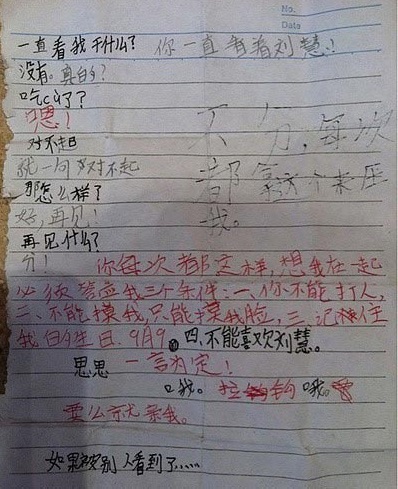 No.
Date
一直看我干什么? 你一直看着刘慧!
没有。真的?
吃cù了?
嗯!
对不起
就一句对不起
那怎么样了
好,再见!
再见什么?
分!
不分,每次
都拿这个来压
我。
你每次都这样,想我在一起
必须答应我三个条件:一、你不能打人,
二、不能摸我,只能摸我脸,三、记住
我的生日.9月9。四、不能喜欢刘慧。
思思 一言为定!
口我。拉钩 哦。
要么就亲我。
如果被别人看到了……